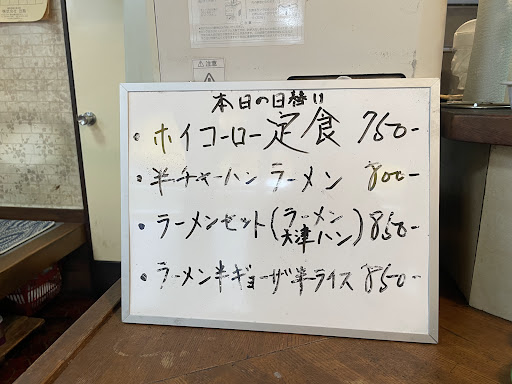 ⚠注意
本日の日替り
・ホイコーロー定食 750-
・半チャーハン ラーメン 800-
・ラーメンセット(ラーメン 天津ハン) 850-
・ラーメン半ギョーザ半ライス 850-